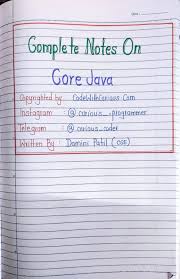 Complete Notes On
Core Java
Copyrighted by : CodeWithCurious.Com
Instagram : @ curious_.programmer
Telegram : @ curious_coder
Written By : Damini Patil (CSE)